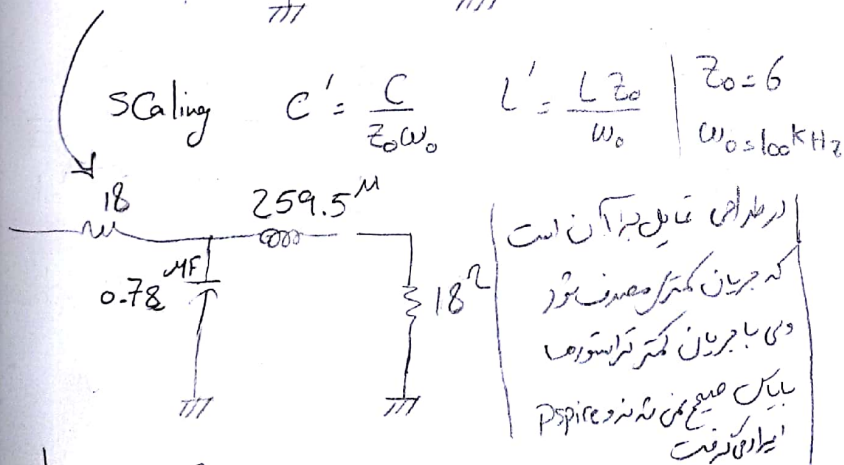 Scaling C' = C / Z₀ω₀ L' = L Z₀ / ω₀ Z₀ = 6
ω₀ = 100 kHz
18
259.5 μ
0.78 μF
18 Ω
در طراحی تمایل بر آن است
که جریان کمتری مصرف شود
ولی با جریان کمتر ترانزیستورها
بایاس صحیح نمی شدند و Pspice
ایراد می گرفت